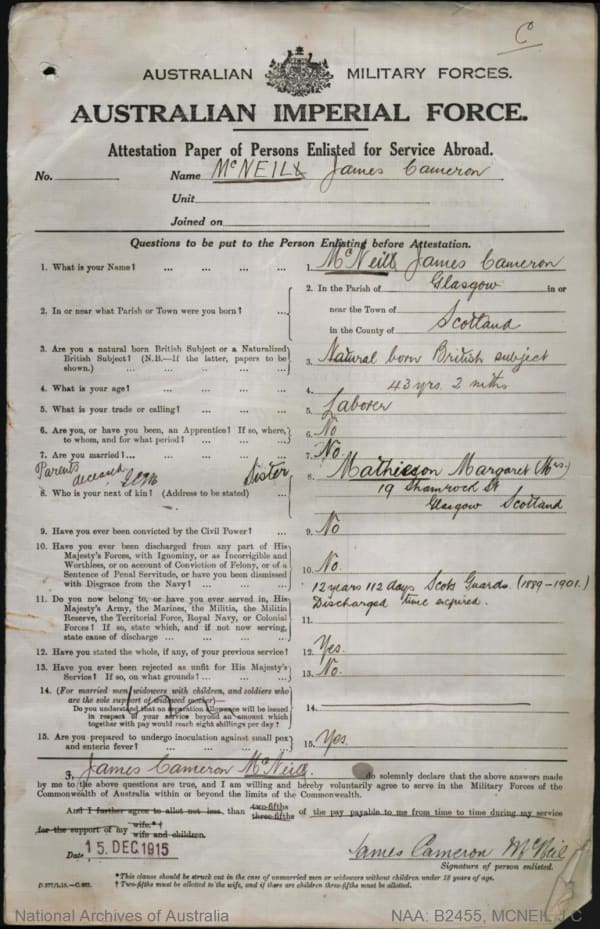 C
AUSTRALIAN MILITARY FORCES.
AUSTRALIAN IMPERIAL FORCE.
Attestation Paper of Persons Enlisted for Service Abroad.
No. Name McNEILL James Cameron
Unit
Joined on
Questions to be put to the Person Enlisting before Attestation.
1. What is your Name? ... ... ... 1. McNeill James Cameron
2. In or near what Parish or Town were you born? ... 2. In the Parish of Glasgow in or
near the Town of
in the County of Scotland
3. Are you a natural born British Subject or a Naturalized
British Subject? (N.B.—If the latter, papers to be
shown.) ... ... ... ... 3. Natural born British subject
4. What is your age? ... ... ... 4. 43 yrs. 2 mths
5. What is your trade or calling? ... ... ... 5. Laborer
6. Are you, or have you been, an Apprentice? If so, where,
to whom, and for what period? ... ... ... 6. No
7. Are you married? ... ... ... ... 7. No.
Parents deceased JCMN Sister
8. Who is your next of kin? (Address to be stated) ... 8. Mathieson Margaret (Mrs.)
19 Shamrock St
Glasgow Scotland
9. Have you ever been convicted by the Civil Power? ... 9. No
10. Have you ever been discharged from any part of His
Majesty's Forces, with Ignominy, or as Incorrigible and
Worthless, or on account of Conviction of Felony, or of a
Sentence of Penal Servitude, or have you been dismissed
with Disgrace from the Navy? ... ... ... 10. No.
11. Do you now belong to, or have you ever served in, His
Majesty's Army, the Marines, the Militia, the Militia
Reserve, the Territorial Force, Royal Navy, or Colonial
Forces? If so, state which, and if not now serving,
state cause of discharge ... ... ... ... 11. 12 years 112 days Scots Guards. (1889-1901.)
Discharged time expired.
12. Have you stated the whole, if any, of your previous service? 12. Yes.
13. Have you ever been rejected as unfit for His Majesty's
Service? If so, on what grounds? ... ... ... 13. No.
14. (For married men, widowers with children, and soldiers who
are the sole support of widowed mother)—
Do you understand that no separation allowance will be issued
in respect of your service beyond an amount which
together with pay would reach eight shillings per day? 14.
15. Are you prepared to undergo inoculation against small pox
and enteric fever? ... ... ... ... 15. Yes.
I, James Cameron McNeill. do solemnly declare that the above answers made
by me to the above questions are true, and I am willing and hereby voluntarily agree to serve in the Military Forces of the
Commonwealth of Australia within or beyond the limits of the Commonwealth.
And I further agree to allot not less than two-fifths three-fifths of the pay payable to me from time to time during my service
for the support of my wife.*† wife and children.
Date 15 DEC 1915 James Cameron McNeil
Signature of person enlisted.
*This clause should be struck out in the case of unmarried men or widowers without children under 18 years of age.
† Two-fifths must be allotted to the wife, and if there are children three-fifths must be allotted.
National Archives of Australia NAA: B2455, MCNEIL J C